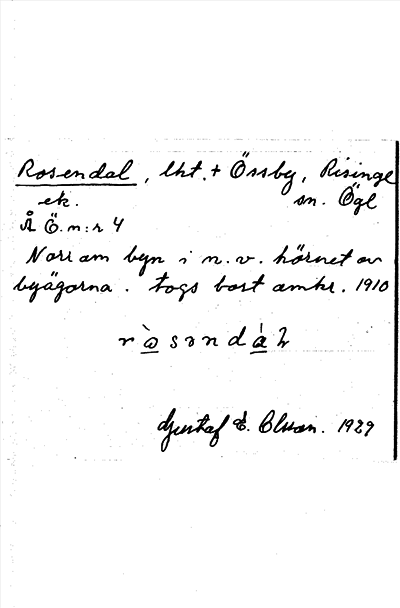 Rosendal, lht. + Össby, Risinge
ek. sn. Ögl
Å Ö.n:r 4
Norr om byn i n.v. hörnet av
byägorna. togs bort omkr. 1910
Gustaf E. Olsson. 1929